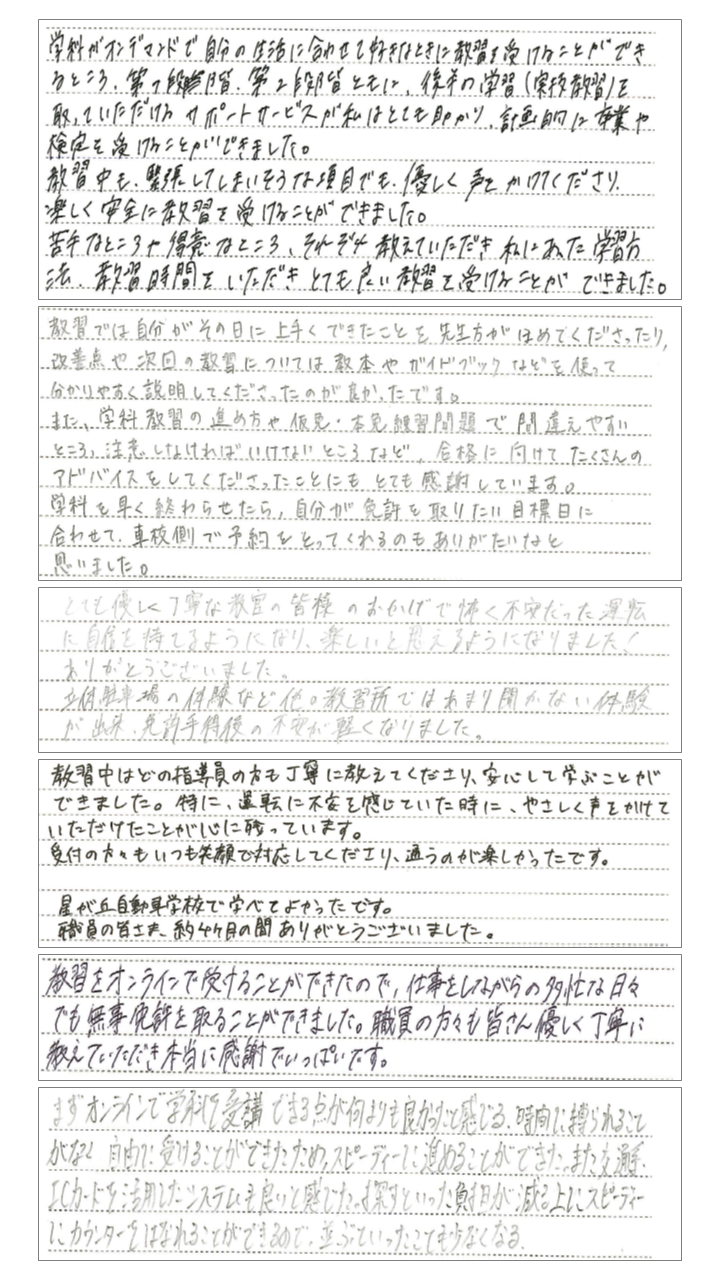 学科がオンデマンドで自分の生活に合わせて好きなときに教習を受けることができ
るところ、第1段階、第2段階ともに、後半の学習(実技教習)を
取っていただける サポートサービスが私はとても助かり、計画的に卒業や
検定を受けることができました。
教習中も、緊張してしまいそうな項目でも、優しく声をかけてくださり、
楽しく安全に教習を受けることができました。
苦手なところや得意なところ、それぞれ教えていただき私にあった学習方
法、教習時間をいただきとても良い教習を受けることができました。
教習では自分がその日に上手くできたことを先生方がほめてくださったり、
改善点や次回の教習については教本やガイドブックなどを使って
分かりやすく説明してくださったのが良かったです。
また、学科教習の進め方や仮免・本免練習問題で間違えやすい
ところ、注意しなければいけないところなど、合格に向けてたくさんの
アドバイスをしてくださったことにもとても感謝しています。
学科を早く終わらせたら、自分が免許を取りたい目標日に
合わせて、車校側で予約をとってくれるのもありがたいなと
思いました。
とても優しく丁寧な教官の皆様のおかげで怖く不安だった運転
に自信を持てるようになり、楽しいと思えるようになりました!
ありがとうございました。
立体駐車場の体験など他の教習所ではあまり聞かない体験
が出来、免許取得後の不安が軽くなりました。
教習中はどの指導員の方も丁寧に教えてくださり、安心して学ぶことが
できました。特に、運転に不安を感じていた時に、やさしく声をかけて
いただけたことが心に残っています。
受付の方々もいつも笑顔で対応してくださり、通うのが楽しかったです。
星が丘自動車学校で学べてよかったです。
職員の皆さま、約4ヶ月の間ありがとうございました。
教習をオンラインで受けることができたので、仕事をしながらの多忙な日々
でも無事免許を取ることができました。職員の方々も皆さん優しく丁寧に
教えていただき本当に感謝でいっぱいです。
まずオンラインで学科を受講できる点が何よりも良かったと感じる。時間に縛られること
がなく自由に受けることができたため、スピーディーに進めることができた。また交通系
ICカードを活用したシステムも良いと感じた。探すといった負担が減る上にスピーディー
にカウンターをはなれることができるので、並ぶといったことも少なくなる。